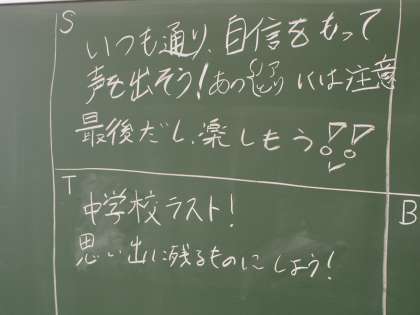 S
いつも通り、自信をもって
声を出そう!あつ には注意
最後だし、楽しもう!!
T
中学校ラスト!
思い出に残るものにしよう!
B